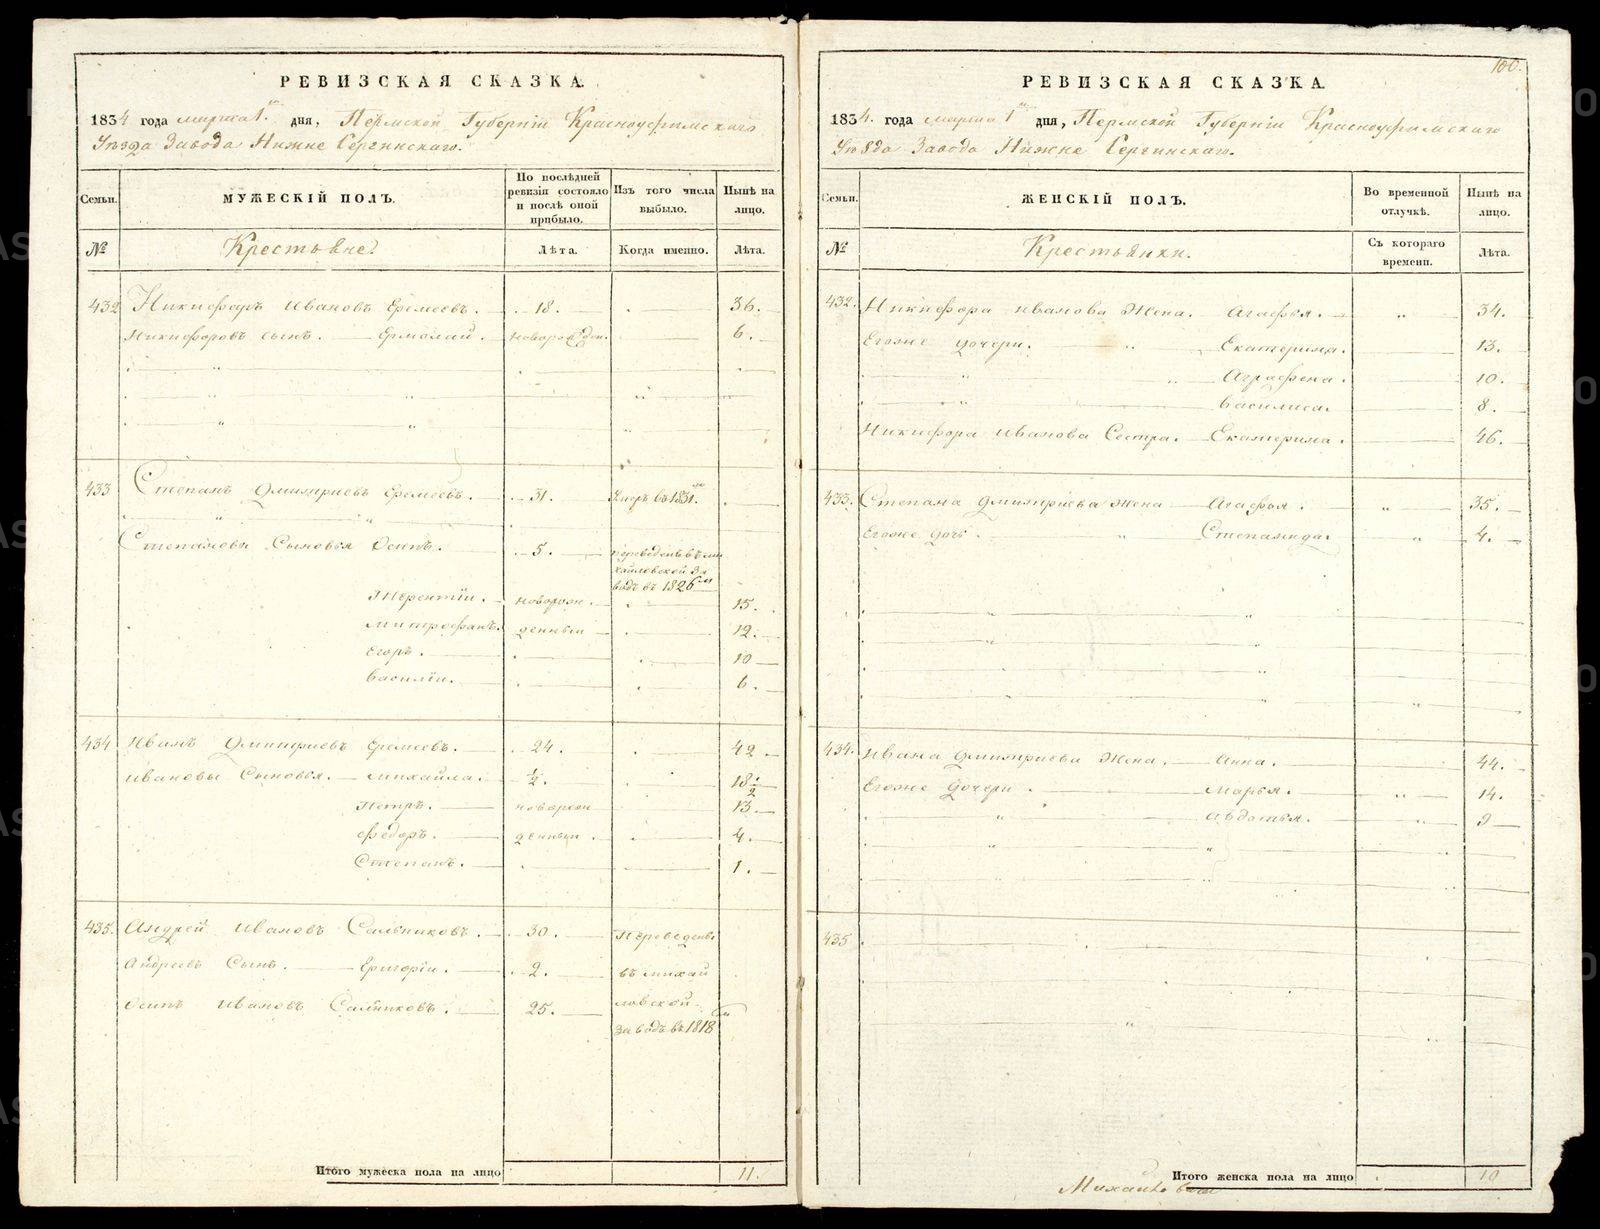 РЕВИЗСКАЯ СКАЗКА.
1834 года марта 1 дня, Пермской Губернiи Красноуфимскаго
Уѣзда Завода Нижне Сергинскаго.
Семьи.
МУЖЕСКIЙ ПОЛЪ.
По послѣдней ревизiи состояло и послѣ оной прибыло.
Изъ того числа выбыло.
Нынѣ на лицо.
№
Крестьяне
Лѣта.
Когда именно.
Лѣта.
432 Никифоръ Ивановъ Еремеевъ. 18. 36.
Никифоровъ сынъ. Ермолай. 6.
433 Степанъ Дмитриевъ Еремеевъ. 31. Умеръ въ 1831
Степановы Сыновья Осипъ. 5. переведенъ въ Ми
хайловской За
водъ въ 1826
Терентiи. новорож 15.
Митрофанъ. денныи 12.
Егоръ. 10
Василiи. 6.
434 Иванъ Дмитриевъ Еремеевъ. 24. 42
Ивановы Сыновья. Михайла. ½. 18½
Петръ. новорож 13
Федоръ. денныи 4.
Степанъ. 1.
435. Андрей Ивановъ Сальниковъ. 30. Переведенъ
Андреевъ Сынъ. Григорiи. 2. въ Михай
Осипъ Ивановъ Сальниковъ. 25. ловской
Заводъ въ 1818
Итого мужеска пола на лицо 11.
100.
РЕВИЗСКАЯ СКАЗКА.
1834. года марта 1 дня, Пермской Губернiи Красноуфимскаго
Уѣзда Завода Нижне Сергинскаго.
Семьи.
ЖЕНСКIЙ ПОЛЪ.
Во временной отлучкѣ.
Нынѣ на лицо.
№
Крестьянки.
Съ котораго времени.
Лѣта.
432. Никифора Иванова Жена. Агафья. 34.
Егоже дочери. Екатерина. 13.
Аграфена. 10.
Василиса. 8.
Никифора Иванова Сестра. Екатерина. 46.
433. Степана Дмитриева Жена Агафья. 35.
Егоже дочь. Степанида. 4.
434. Ивана Дмитриева Жена. Анна. 44.
Егоже Дочери. Марья. 14.
Авдотья. 9
435
Итого женска пола на лицо 10